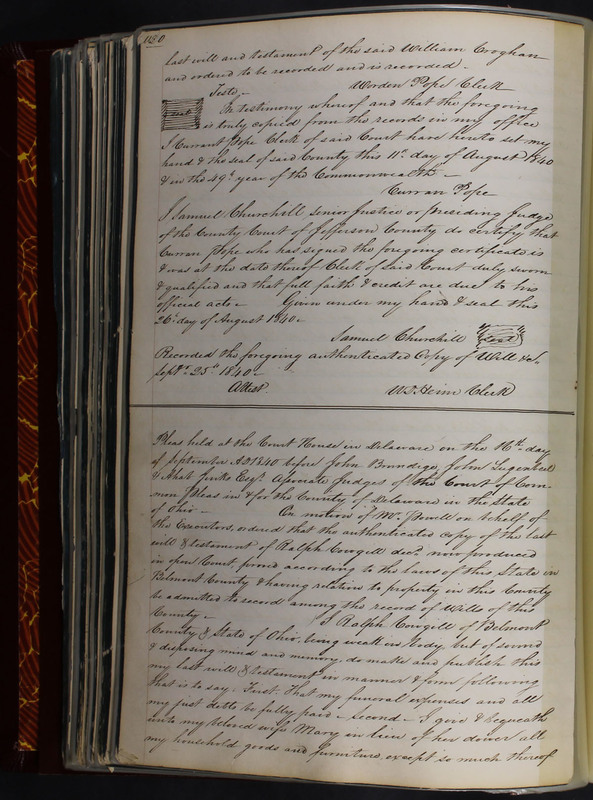 180
last will and testament of the said William Croghan
and ordered to be recorded and is recorded.
Teste, Worden Pope Clerk
Seal In testimony whereof and that the foregoing
is truly copied from the records in my office
I Curran Pope Clerk of said Court have hereto set my
hand & the seal of said County this 11th day of August 1840
& in the 49th year of the Commonwealth.
Curran Pope
I Samuel Churchill, senior Justice or presiding Judge
of the County Court of Jefferson County do certify that
Curran Pope who has signed the foregoing certificate is
& was at the date thereof Clerk of Said Court duly sworn
& qualified and that full faith & credit are due to his
official acts. Given under my hand & seal this
26th day of August 1840.
Samuel Churchill "Seal"
Recorded the foregoing authenticated Copy of Will &c.
Septr. 25th 1840
Attest. Clerk
Pleas held at the Court House in Delaware on the 16th day
of September AD 1840 before John Brundige, John
& Esqrs. Associate Judges of the Court of Com-
mon Pleas in & for the County of Delaware in the State
of Ohio — On motion of Mr. Powell on behalf of
the Executors, ordered that the authenticated copy of the last
will & testament of Ralph Cowgill decd. now produced
in open Court, proved according to the laws of this State in
Belmont County & having relation to property in this County
be admitted to record among the record of Wills of this
County. I Ralph Cowgill of Belmont
County & State of Ohio, being weak in body, but of sound
& disposing mind and memory, do make and publish this
my last will & testament in manner & form following
that is to say. First. That my funeral expenses and all
my just debts be fully paid — Second — I give & bequeath
unto my beloved wife Mary in lieu of her dower all
my household goods and furniture, except so much thereof